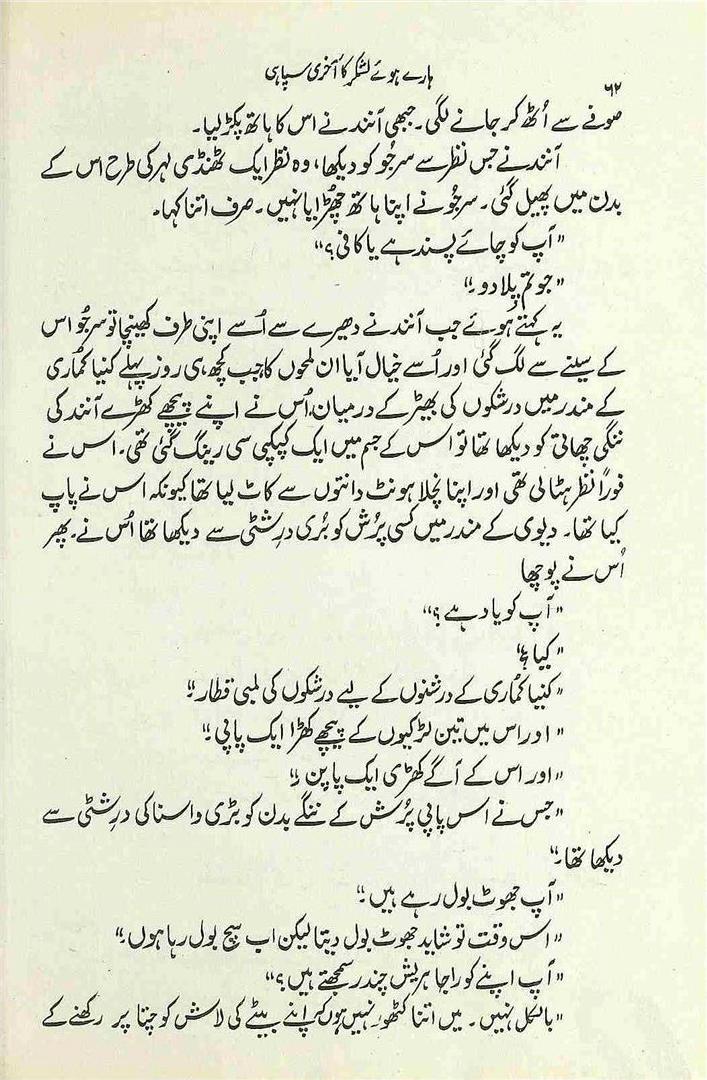 ہارے ہوئے لشکر کا آخری سپاہی
۶۲
صوفے سے اُٹھ کر جانے لگی۔ جبھی آنند نے اس کا ہاتھ پکڑ لیا۔
آنند نے جس نظر سے سرجُو کو دیکھا، وہ نظر ایک ٹھنڈی لہر کی طرح اس کے
بدن میں پھیل گئی۔ سرجُو نے اپنا ہاتھ چھُڑایا نہیں۔ صرف اتنا کہا۔
"آپ کو چائے پسند ہے یا کافی؟"
"جو تم پلا دو۔"
یہ کہتے ہُوئے جب آنند نے دھیرے سے اُسے اپنی طرف کھینچا تو سرجُو اس
کے سینے سے لگ گئی اور اُسے خیال آیا ان لمحوں کا جب کچھ ہی روز پہلے کنیا کمُاری
کے مندر میں درشکوں کی بھیڑ کے درمیان، اُس نے اپنے پیچھے کھڑے آنند کی
ننگی چھاتی کو دیکھا تھا تو اس کے جسم میں ایک کپکپی سی رینگ گئی تھی۔ اس نے
فوراً نظر ہٹا لی تھی اور اپنا نچلا ہونٹ دانتوں سے کاٹ لیا تھا کیونکہ اس نے پاپ
کیا تھا۔ دیوی کے مندر میں کسی پرُش کو بُری درِشٹی سے دیکھا تھا اُس نے۔ پھر
اُس نے پوچھا
"آپ کو یاد ہے؟"
"کیا؟"
"کنیا کمُاری کے درشنوں کے لیے درشکوں کی لمبی قطار۔"
"اور اس میں تین لڑکیوں کے پیچھے کھڑا ایک پاپی۔"
"اور اس کے آگے کھڑی ایک پاپن۔"
"جس نے اس پاپی پرُش کے ننگے بدن کو بڑی واسنا کی درِشٹی سے
دیکھا تھا۔"
"آپ جھوٹ بول رہے ہیں۔"
"اس وقت تو شاید جھوٹ بول دیتا لیکن اب سچ بول رہا ہوں۔"
"آپ اپنے کو راجا ہریش چندر سمجھتے ہیں؟"
"بالکل نہیں۔ میں اتنا کٹھور نہیں ہوں کہ اپنے بیٹے کی لاش کو چتا پر رکھنے کے